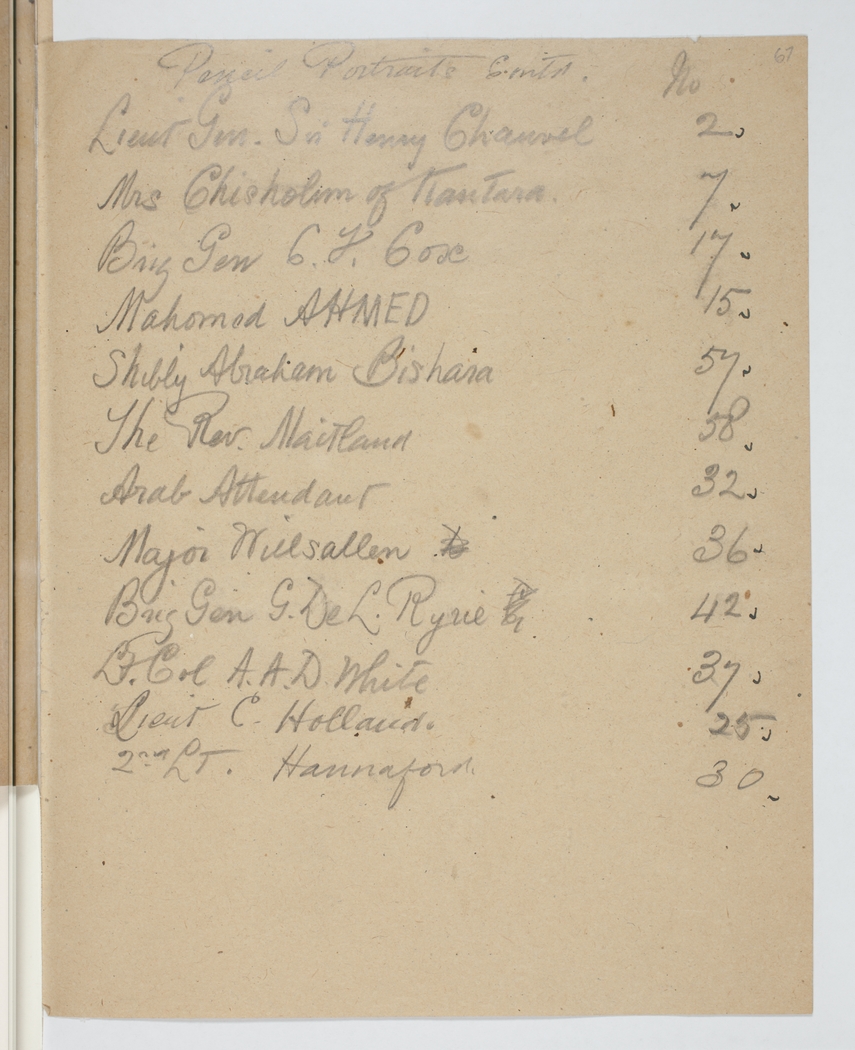 67
Pencil Portraits Contd. No.
Lieut Gen. Sir Henry Chauvel 2
Mrs Chisholm of Kantara. 7
Brig Gen C. F. Cox 17
Mahomed AHMED 15
Shibly Abraham Bishara 57
The Rev. Maitland 58
Arab Attendant 32
Major Willsallen 36
Brig Gen G. De L. Ryrie 42
Lt. Col A. A. D. White 37
Lieut C. Holland. 25
2nd LT. Hannaford. 30